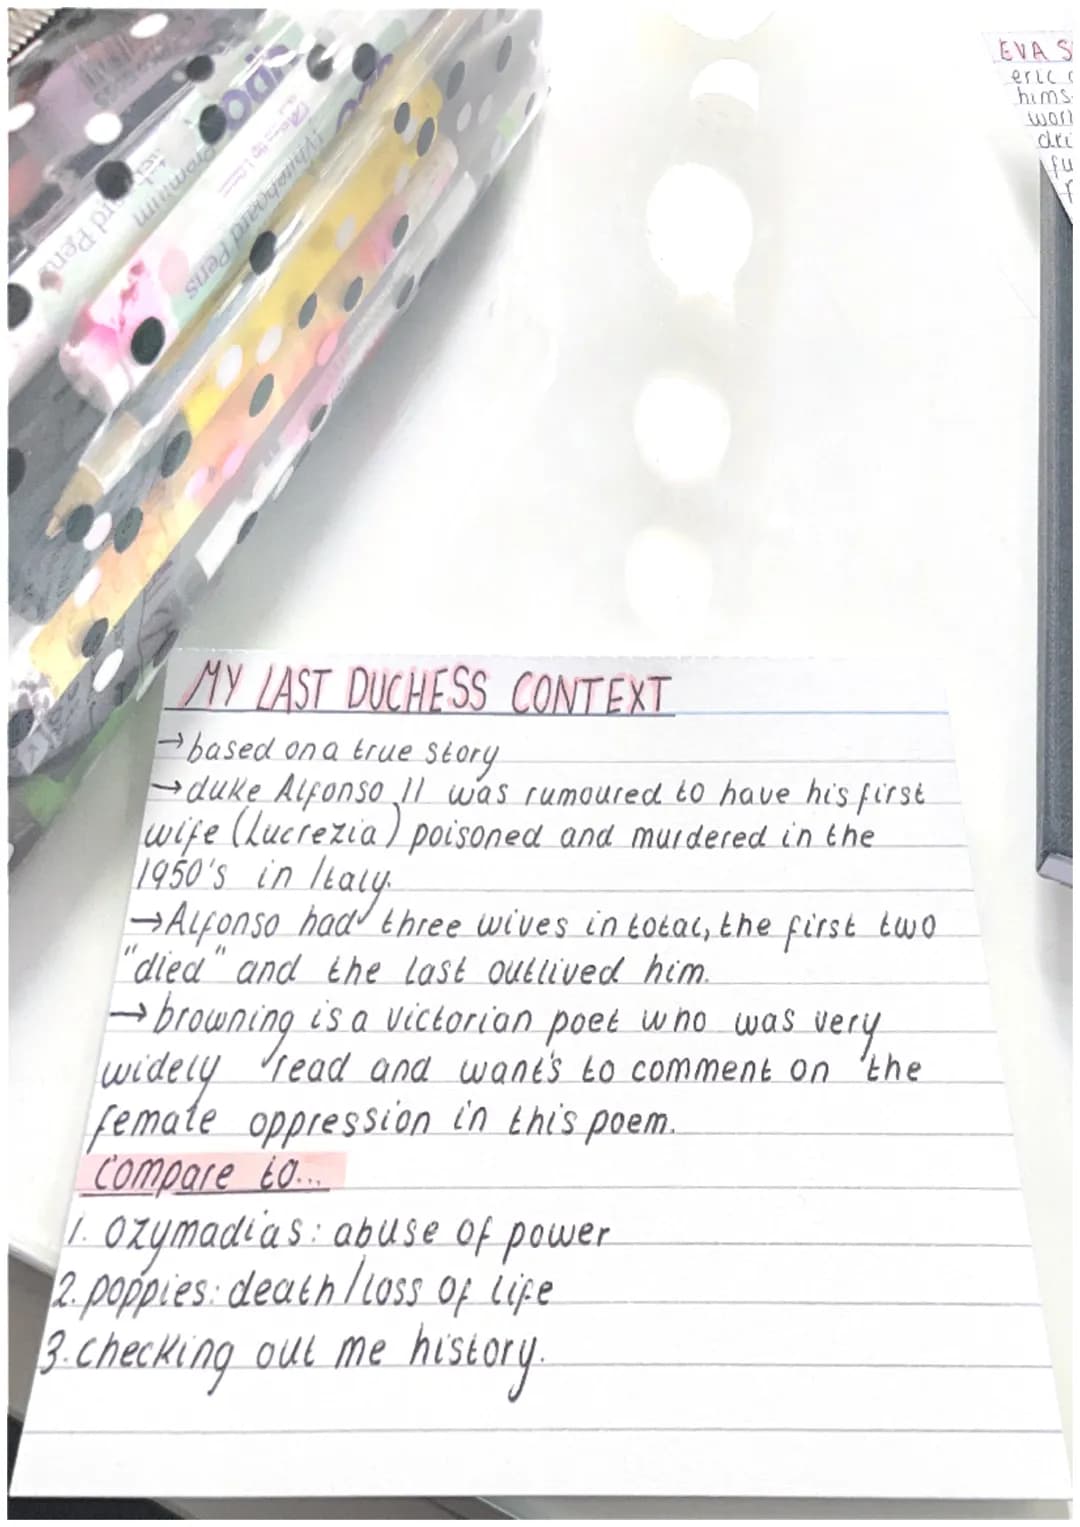 Whiteboard Pens
Premium
EVA S
eric
hims
wor
MY LAST DUCHESS CONTEXT
→based on a true story
→duke Alfonso II was rumoured to have his first
wife (Lucrezia) poisoned and murdered in the
1950's in Italy.
→Alfonso had three wives in total, the first two
"died" and the last outlived him.
→browning is a victorian poet who was very
widely read and want's to comment on the
female oppression in this poem.
Compare to...
1. Ozymadias: abuse of power
2. poppies: death/loss of life
3. checking out me history.